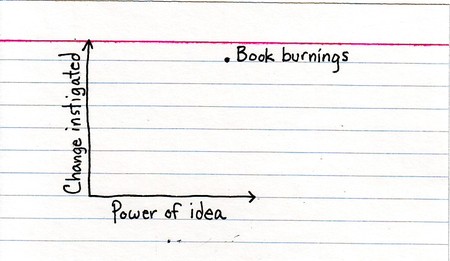 Book burnings
Change instigated
Power of idea